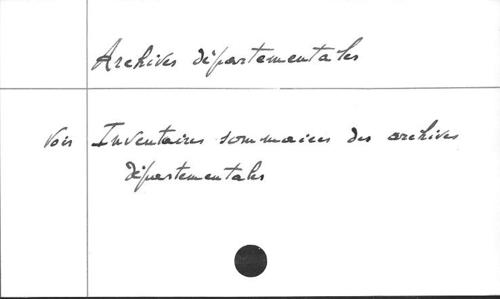 Archives départementales
Voir Inventaires sommaires des archives
départementales